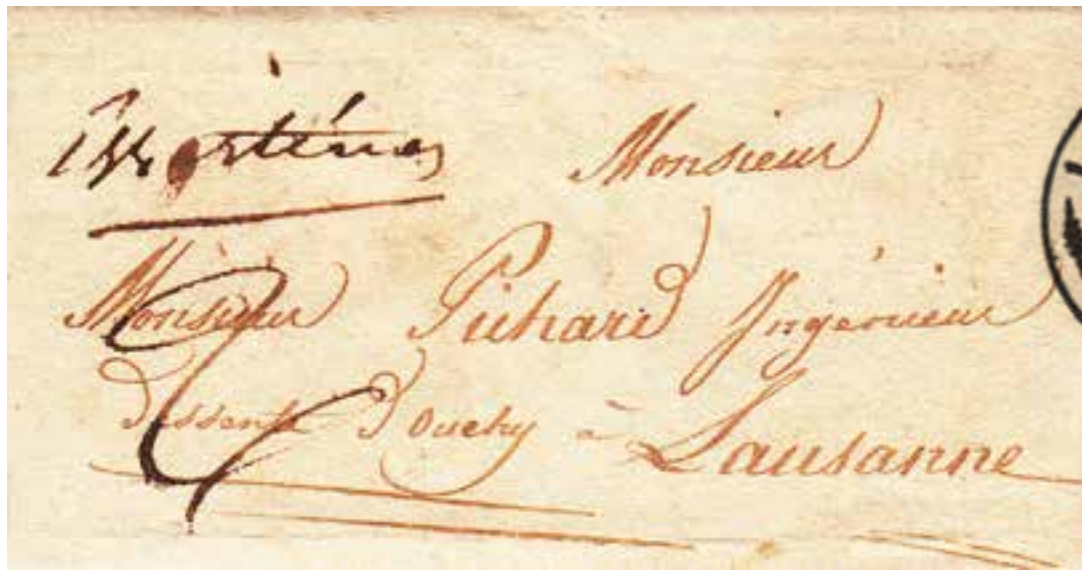 Monsieur
Monsieur Pichard Ingénieur
d'Ouchy à Lausanne